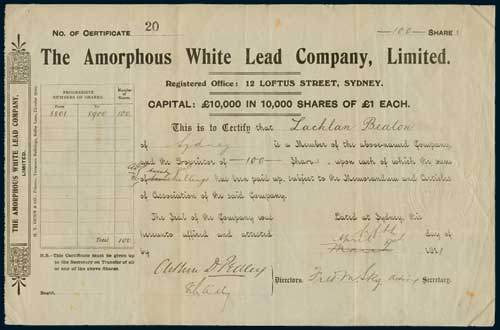 NO. OF CERTIFICATE 20
100 SHARE
The Amorphous White Lead Company, Limited.
Registered Office: 12 LOFTUS STREET, SYDNEY.
CAPITAL: £10,000 IN 10,000 SHARES OF £1 EACH.
THE AMORPHOUS WHITE LEAD COMPANY,
LIMITED.
PROGRESSIVE
NUMBERS OF SHARES.
Number
of
Shares.
From To
100
Total 100
N.B.—This Certificate must be given up
to the Secretary on Transfer of all
or any of the above Shares.
This is to Certify that Lachlan
of Sydney is a Member of the above-named Company
and the Proprietor of 100 Share, upon each of which the sum
of has been paid up, subject to the Memorandum and Articles
of Association of the said Company.
The Seal of the Company was
hereunto affixed and attested
by
Dated at Sydney, this
day of
April
Directors.
Secretary.